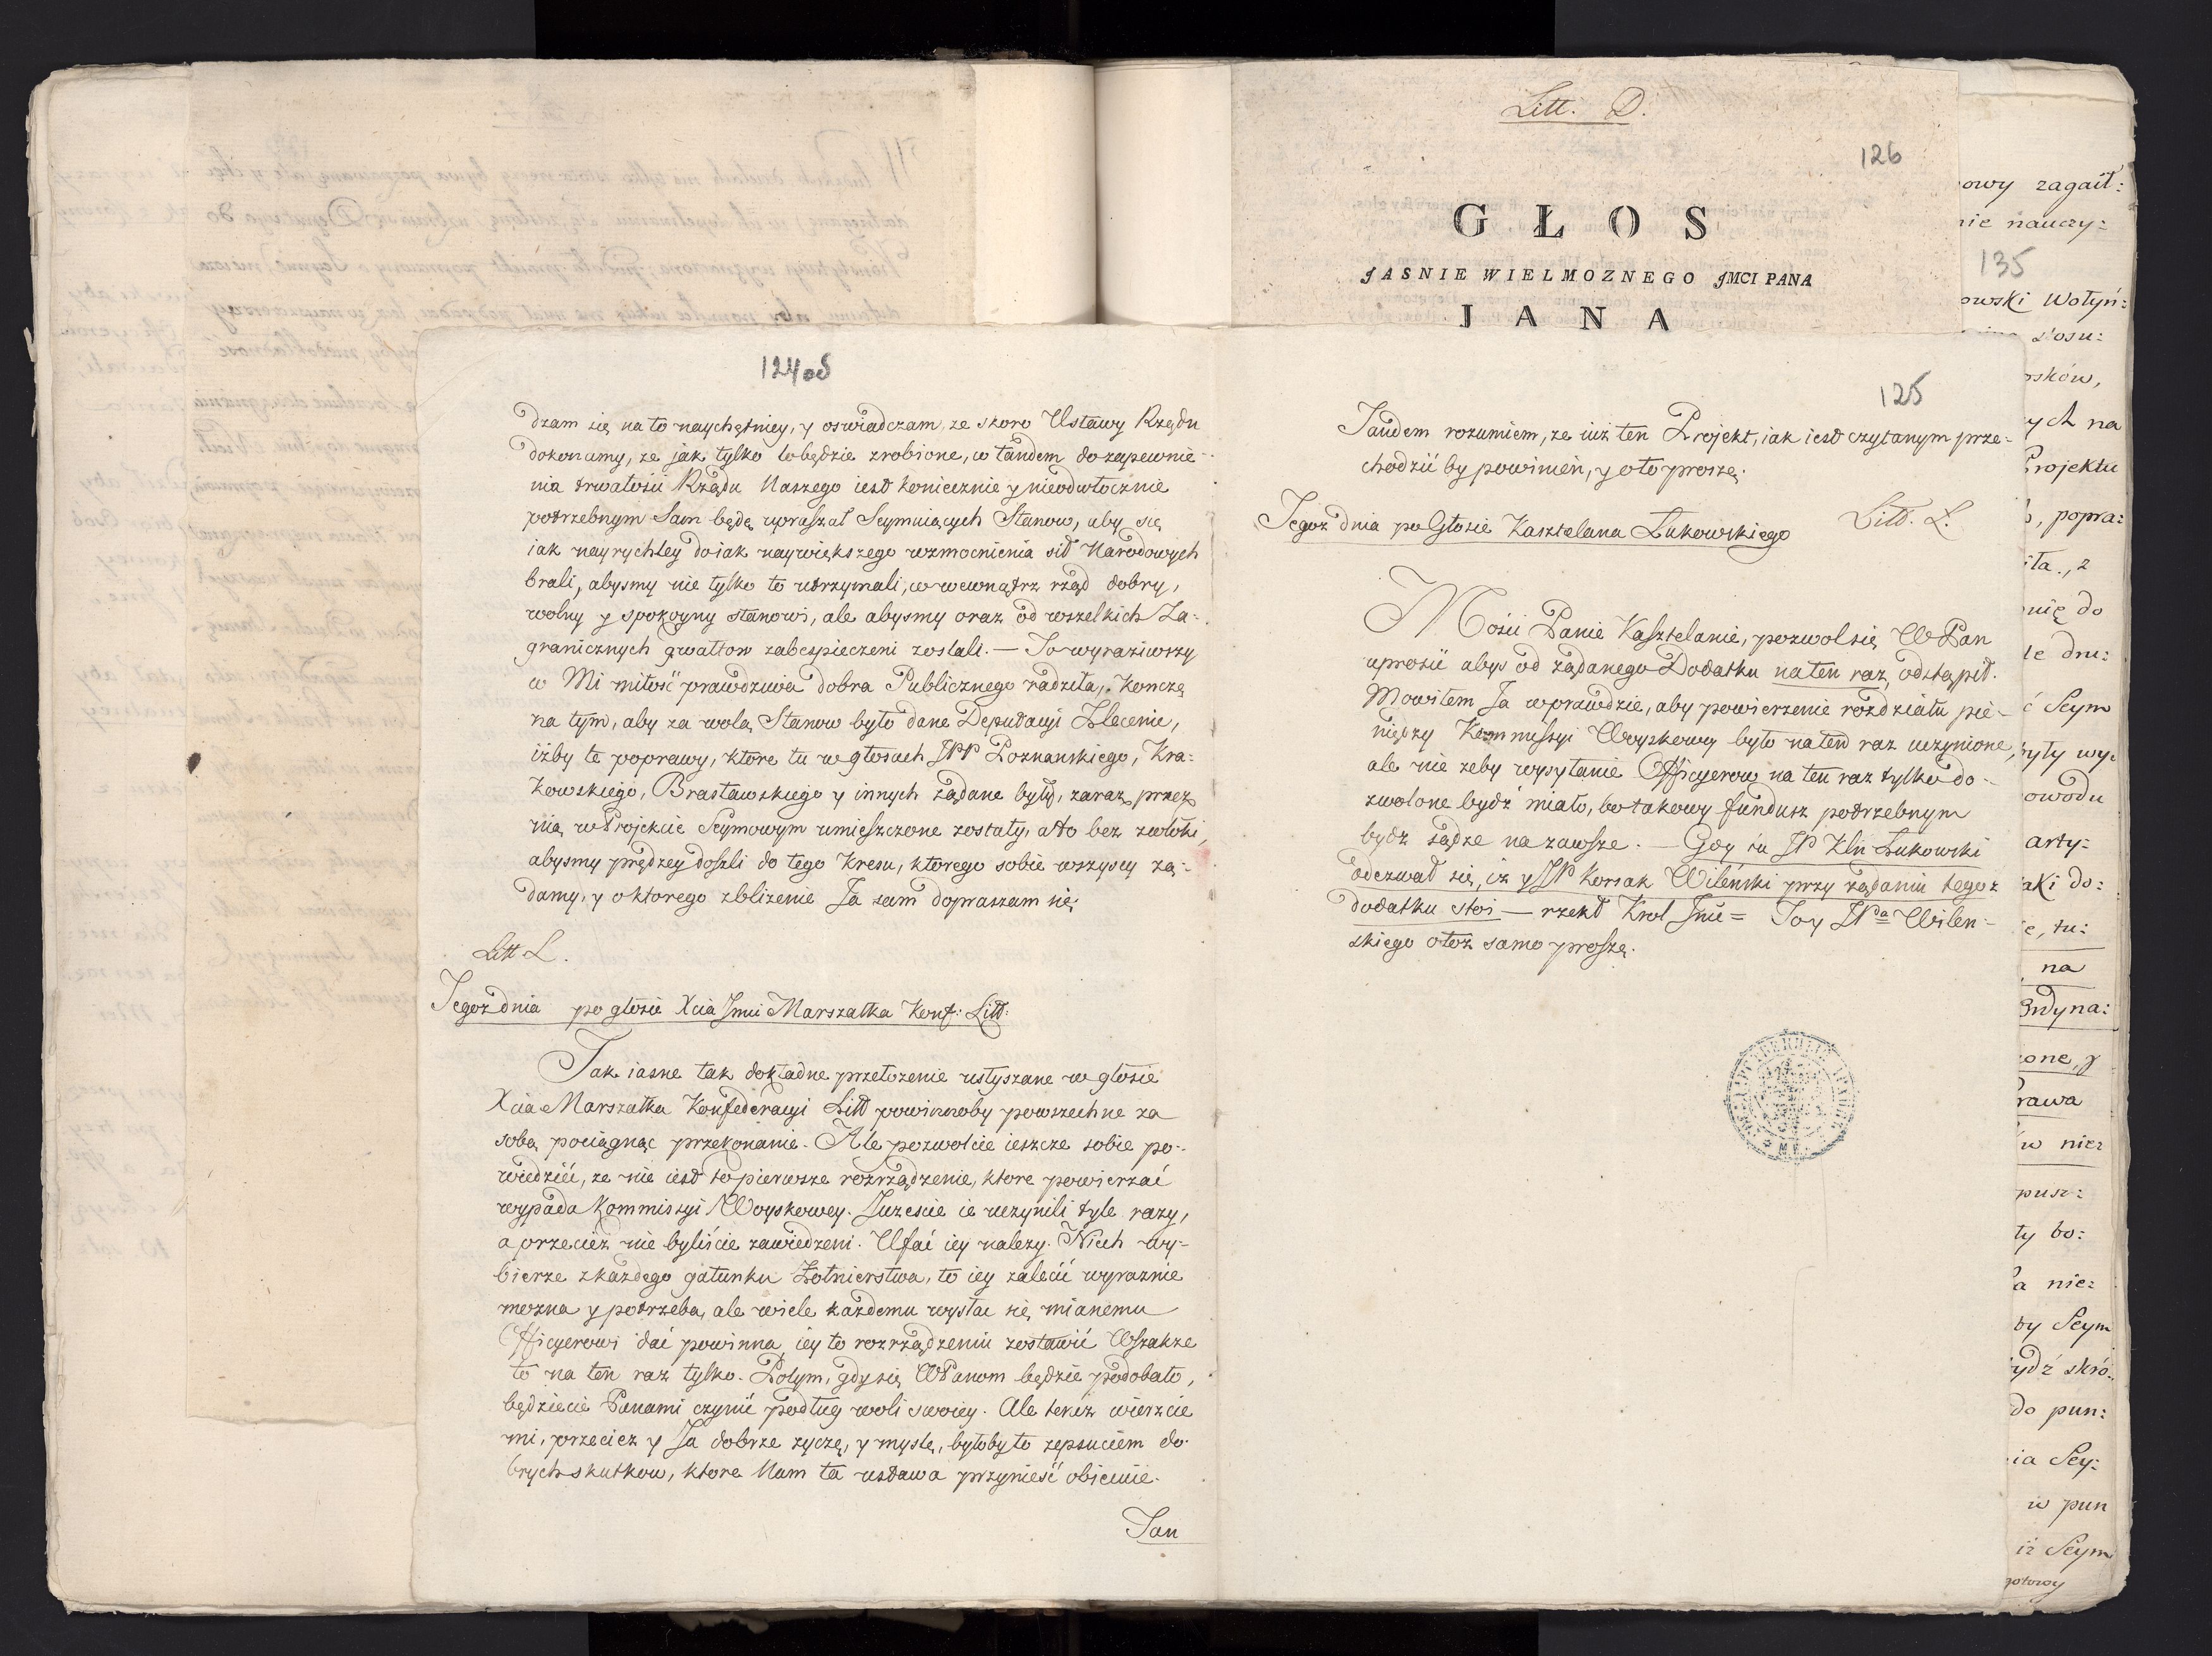 124 od
dzam się na to naychętniey, y oswiadczam, ze skoro Ustawy Rządu
dokonamy, ze jak tylko to będzie zrobione, co tandem do zapewnie-
nia trwałości Rządu Naszego iest koniecznie y nieodwłocznie
potrzebnym Sam będę upraszał Seymuiących Stanow, aby się
iak nayrychley do iak naywiększego wzmocnienia sił Narodowych
brali, abysmy nie tylko to utrzymali, co wewnątrz rząd dobry,
wolny y spokoyny stanowi, ale abysmy oraz od wszelkich Za-
granicznych gwałtow zabespieczeni zostali. — To wyraziwszy
co Mi miłość prawdziwa dobra Publicznego radziła, Kończę
na tym, aby za wolą Stanow było dane Deputacyi Zlecenie,
iżby te poprawy, ktore tu w głosach JPP Poznanskiego, Kra-
kowskiego, Brasławskiego y innych żądane były, zaraz przez
nią w Projekcie Seymowym umieszczone zostały, a to bez zwłoki,
abysmy prędzey doszli do tego Kresu, ktorego sobie wszyscy żą-
damy, y o ktorego zbliżenie Ja sam dopraszam się.
Litt L.
Tegoż dnia po głosie Xcia Jmci Marszałka Konf: Litt:
Tak iasne tak dokładne przełożenie usłyszane w głosie
Xcia Marszałka Konfederacyi Litt powinnoby powszechne za
sobą pociągnąć przekonanie. Ale pozwolcie ieszcze sobie po-
wiedzieć, ze nie iest to pierwsze rozrządzenie, ktore powierzać
wypada Kommissyi Woyskowey. Jużescie ie uczynili tyle razy,
a przecież nie byliście zawiedzeni. Ufać iey nalezy. Niech wy-
bierze z każdego gatunku Żołnierstwa, to iey zalecić wyraznie
mozna y potrzeba, ale wiele każdemu wysłać się mianemu
Officyerowi dać powinna, iey to rozrządzeniu zostawić Wszakże
to na ten raz tylko. Potym, gdy się WPanom będzie podobało,
będziecie Panami czynić podług woli swoiey. Ale teraz wierzcie
mi, przecież y Ja dobrze życzę, y myslę, byłoby to zepsuciem do-
brych skutkow, ktore Nam ta ustawa przynieść obiecuie.
Tan
Litt. D.
126
GŁOS
JASNIE WIELMOZNEGO JMCI PANA
JANA
125
Tandem rozumiem, ze iuż ten Projekt, iak iest czytanym prze-
chodzić by powinien, y o to proszę.
Litt. L.
Tegoż dnia po Głosie Kasztelana Łukowskiego
Mości Panie Kasztelanie, pozwol się WPan
uprosić abyś od żądanego Dodatku na ten raz odstąpił.
Mowiłem Ja wprawdzie, aby powierzenie rozdziału pie-
niędzy Kommissyi Woyskowey było na ten raz uczynione,
ale nie zeby wysyłanie Officyerow na ten raz tylko do-
zwolone bydź miało, bo takowy fundusz potrzebnym
bydz sądzę na zawsze. — Gdy zaś JP Kln Łukowski
odezwał się, iż y JP Korsak Wileński przy żądaniu tegoż
dodatku stoi — rzekł Krol Jmć = To y JPa Wilen-
skiego o toż samo proszę.
135
owy zagaił:
nie nauczy:
owski Wołyń:
stosu:
rsków,
ych na
Projektu
popra:
nię do
le dru:
ć Seym
były wy:
owodu
arty:
aki do:
e, tu:
na
Ordyna:
one, y
Prawa
w nie:
pusz:
ty bo:
a nie:
by Seym
ydź skró:
do pun:
ia Sey:
w pun
iż Seym
gotowy